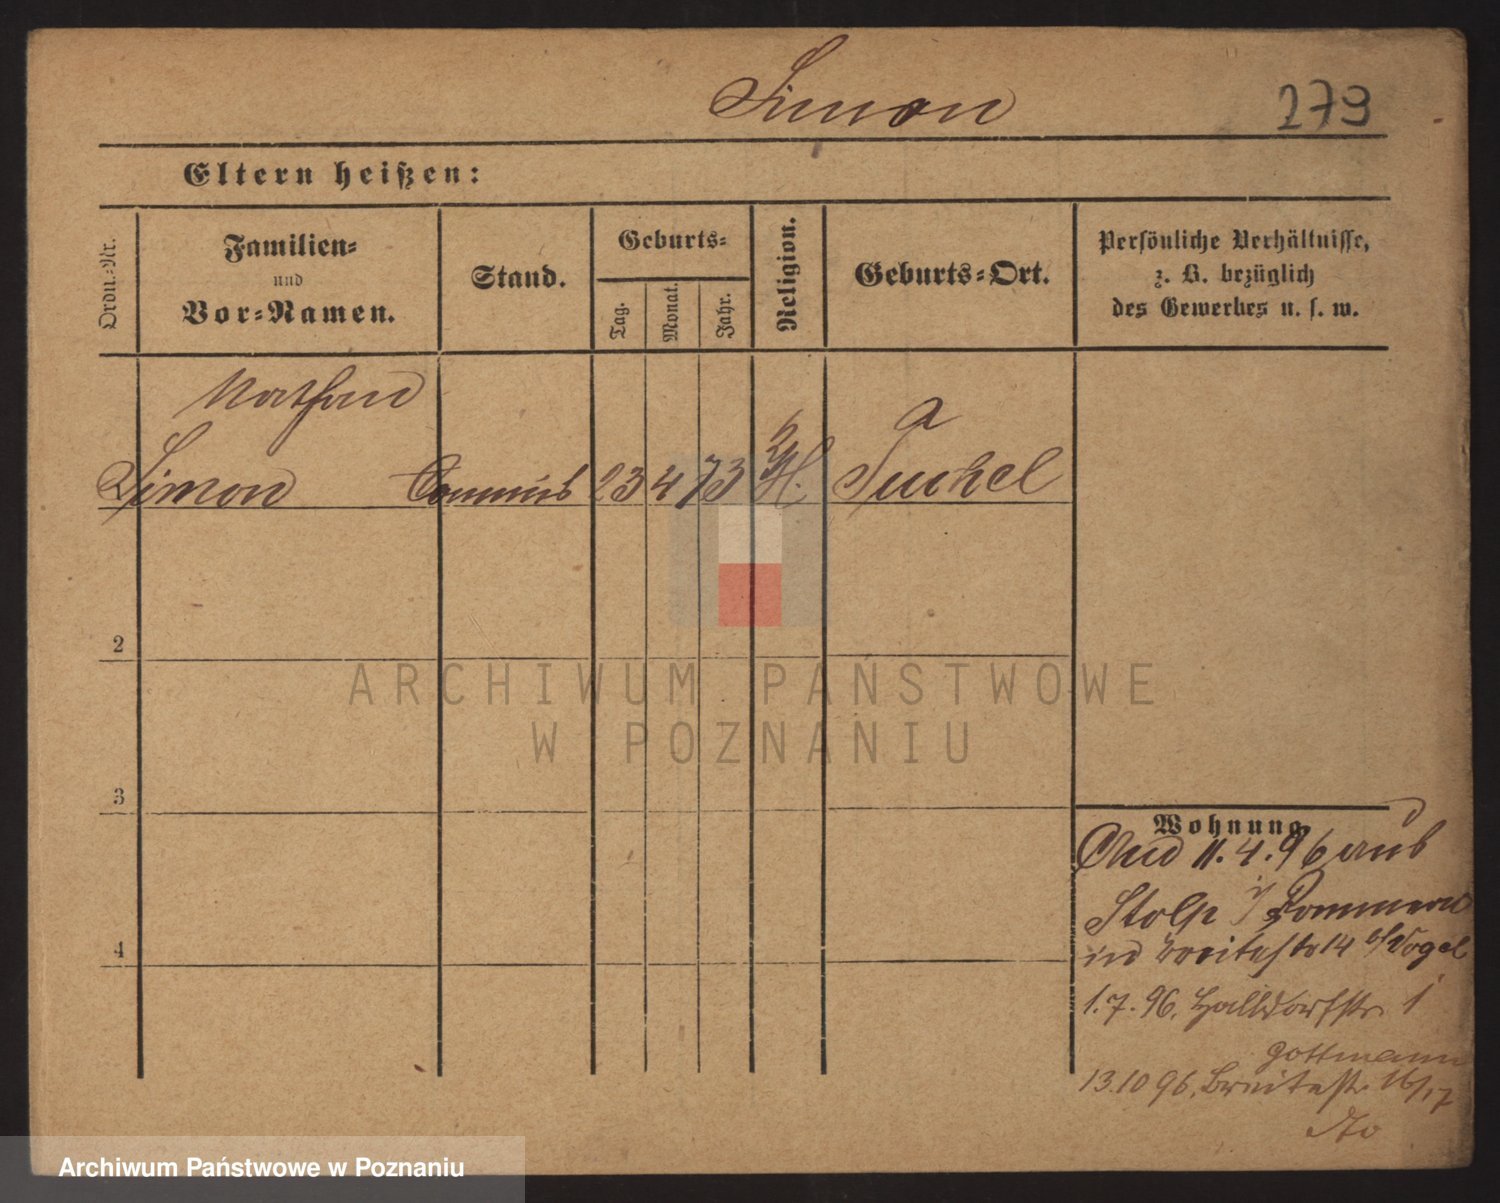 Simon
279
Eltern heißen:
Ordn.-Nr.
Familien-
und
Vor-Namen.
Stand.
Geburts-
Tag.
Monat.
Jahr.
Religion.
Geburts-Ort.
Persönliche Verhältnisse,
z. B. bezüglich
des Gewerbes u. s. w.
Nathan
Simon Commis 23 4 73 Tuchel
2
3
4
Wohnung
11.4.96 aus
Stolp i/ Pommern
in Breitestr 14 b/ Vogel
1.7.96. Halldorfstr. 1
Gottmann
13.10 96. Breitestr 16/17
ARCHIWUM PAŃSTWOWE
W POZNANIU
Archiwum Państwowe w Poznaniu